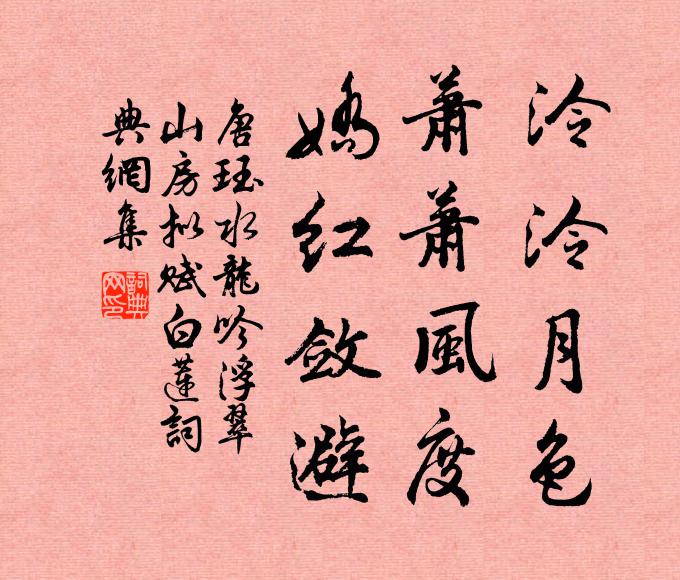 泠泠月色
萧萧風度
娇红敛避
唐珏水龍吟浮翠
山房拟赋白蓮詞
典網集
詞典网印